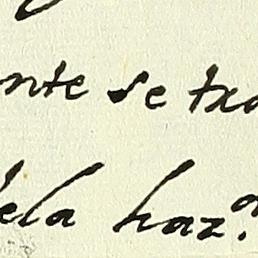 nte se txa
dela haz.ᵃ